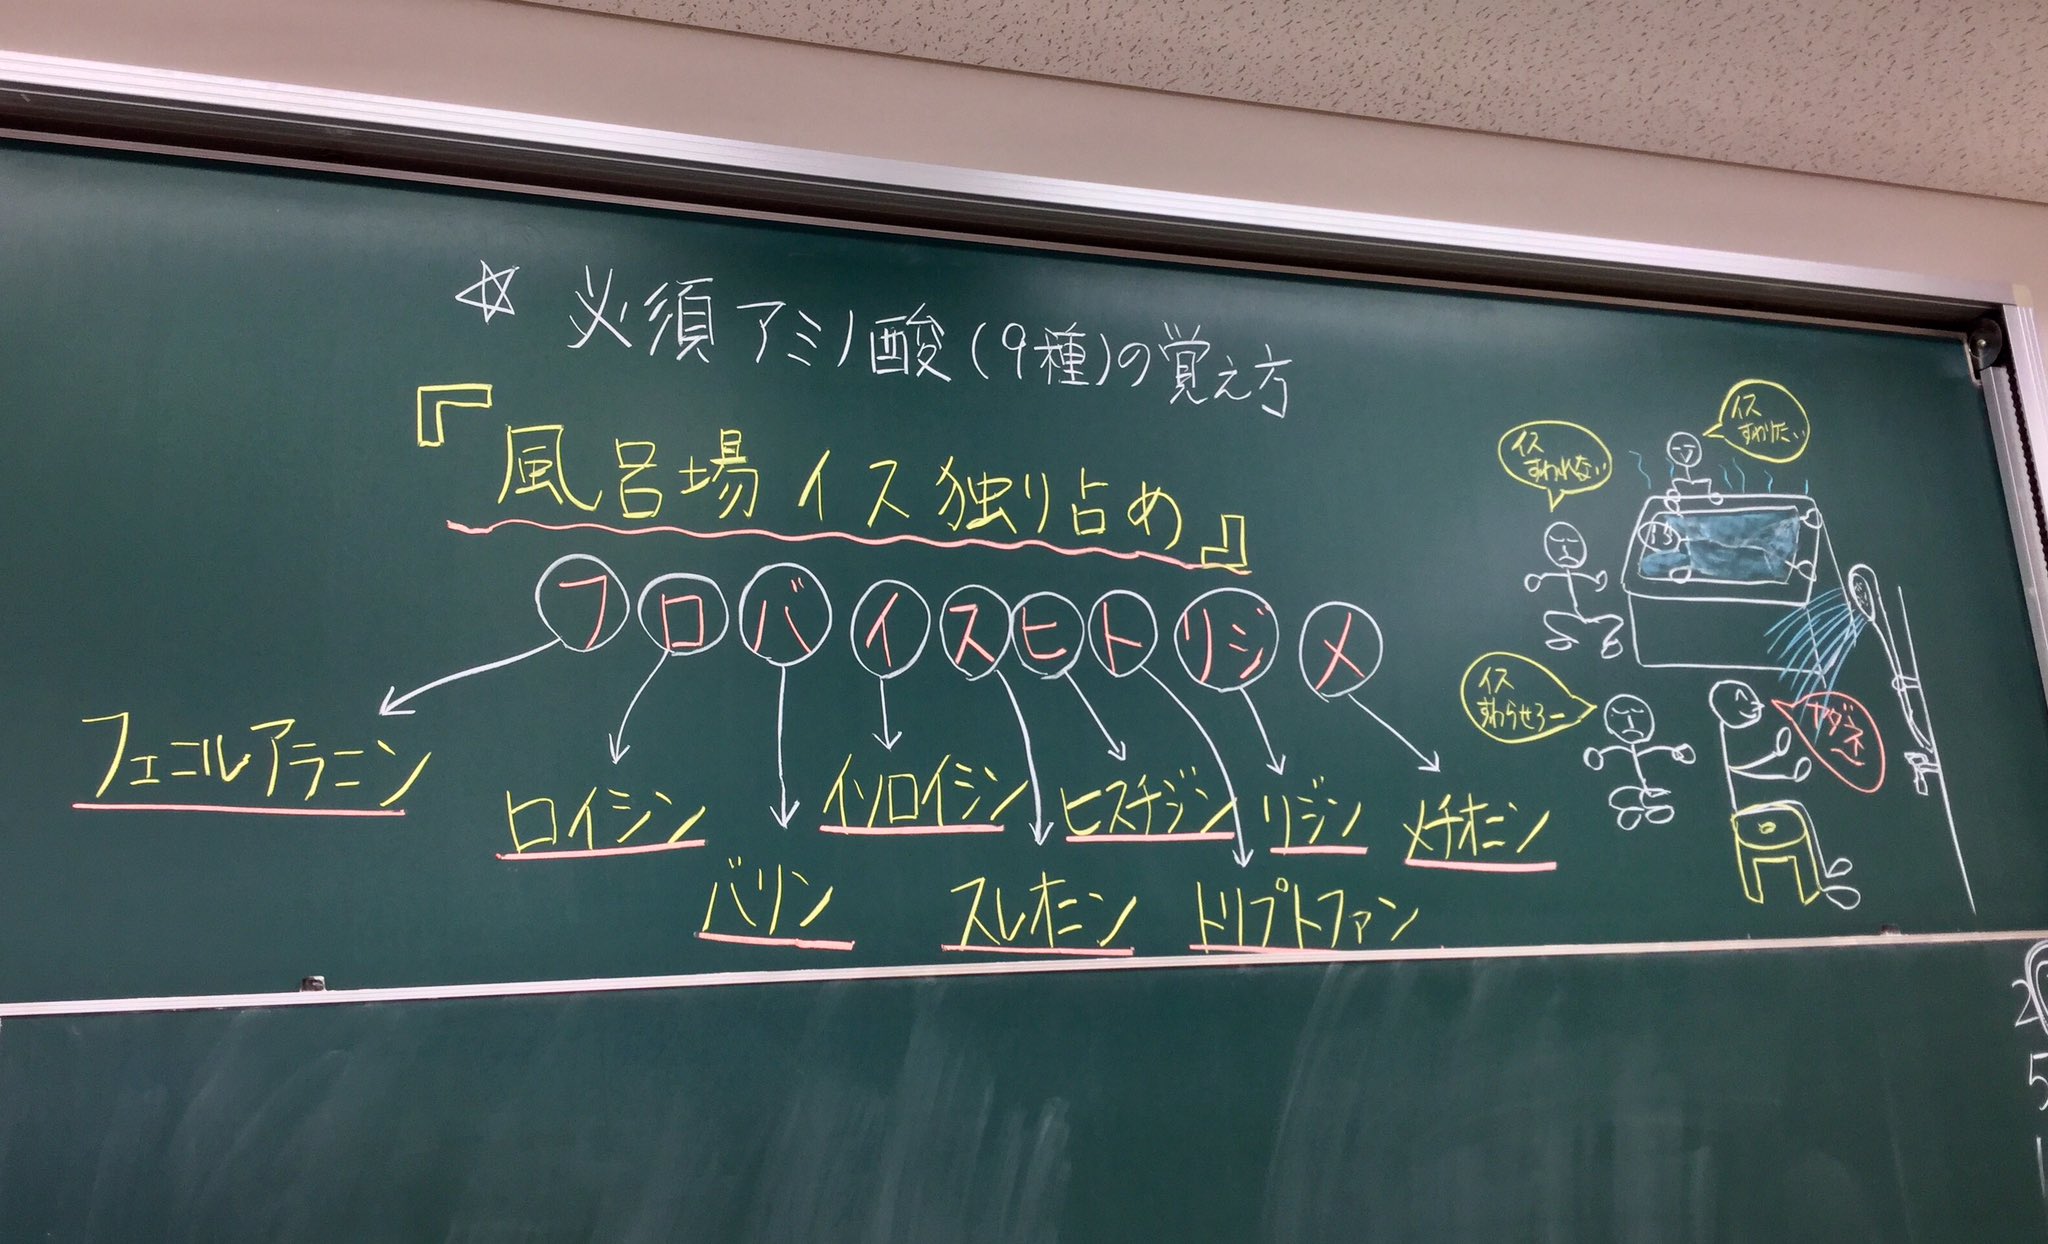 ☆ 必須アミノ酸(9種)の覚え方
『風呂場イス独り占め』
フ ロ バ イ ス ヒ ト リジ メ
フェニルアラニン
ロイシン
バリン
イソロイシン
スレオニン
ヒスチジン
トリプトファン
リジン
メチオニン
イス
すわりたい
イス
すわれない
イス
すわらせろー
ヤダネ
2
5
1